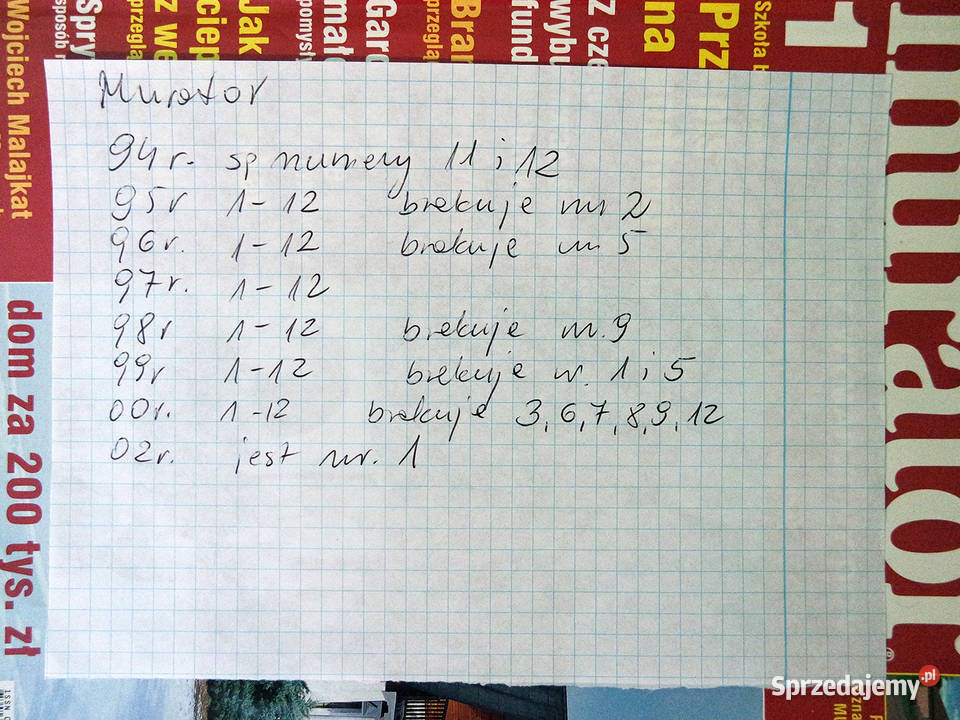 Murator
94r. sp numery 11 i 12
95r 1-12 brakuje nr 2
96r. 1-12 brakuje nr 5
97r. 1-12
98r 1-12 brakuje nr. 9
99r 1-12 brakuje nr. 1 i 5
00r. 1-12 brakuje 3, 6, 7, 8, 9, 12
02r. jest nr. 1
murator
1
Szkoła
Prz
na
z cze
wybu
fund
Bran
przeglą
Garo
mato
pomysł
Jak
ciep
z we
przeglą
Spry
sposób
Wojciech Malajkat
dom za 200 tys. zł
ISSN
Sprzedajemy.pl